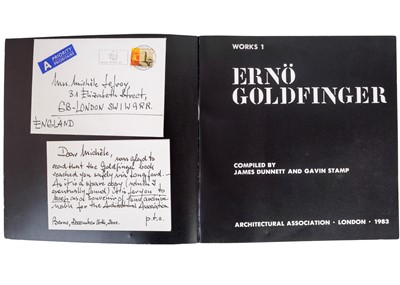 A
PRIORITY
PRIORITAIRE
Mrs. Michèle
31 Elizabeth Street,
GB-LONDON SW1W 9RR.
ENGLAND
Dear Michèle, was glad to
read that the Goldfinger book
reached you safely via
As it is a spare copy (which I
eventually found) it is for you to
keep as a souvenir of
for the Architectural Association
Berne, December
p.t.o.
WORKS 1
ERNÖ
GOLDFINGER
COMPILED BY
JAMES DUNNETT AND GAVIN STAMP
ARCHITECTURAL ASSOCIATION · LONDON · 1983